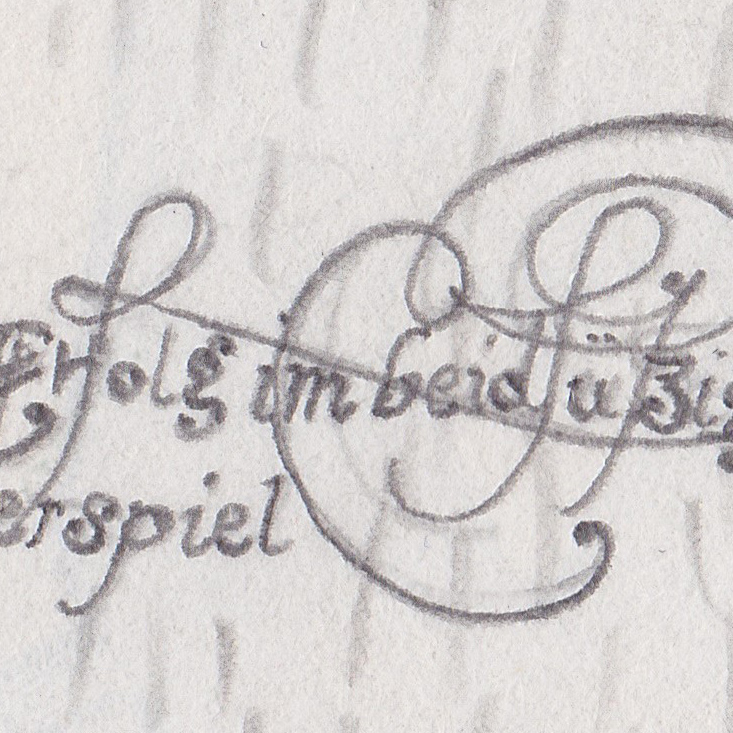 Erfolg im beidfüßig
erspiel